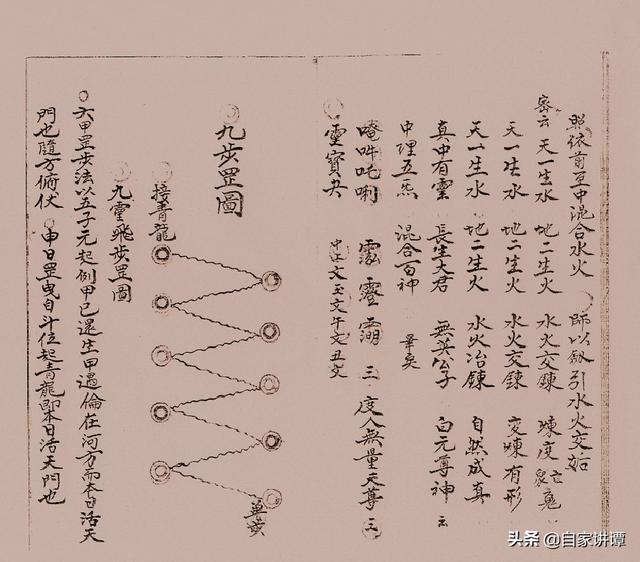 照依前至中混合水火　師以劔引水火交姤
密云　天一生水　地二生火　水火交鍊　煉度亡爽
天一生水　地二生火　水火交鍊　交煉有形
天一生水　地二生火　水火冶鍊　自然成真
真中有靈　長生大君　無英公子　白元尊神　云
中理五炁　混合百神　畢矣
唵吽吒唎　三　度人無量天尊　三
靈寶夬　中文　玉文　午文　丑文
九步罡圖
接青龍
單步
九靈飛步罡圖
六甲罡步法以五子元起例甲己還生甲遇倫在河方而本日活天
門也隨方俯伏　申日罡曳自斗位起青龍即本日活天門也
头条 @自家讲谭